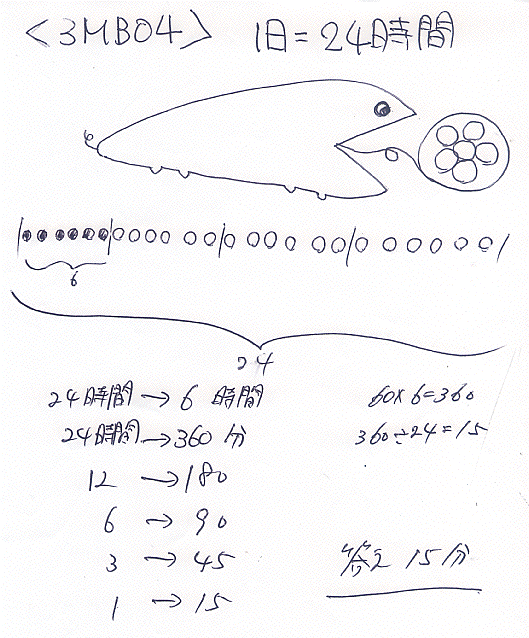 <3MB04> 1日=24時間
6
24
24時間→6時間 60×6=360
24時間→360分 360÷24=15
12→180
6→90
3→45
1→15
答え 15分